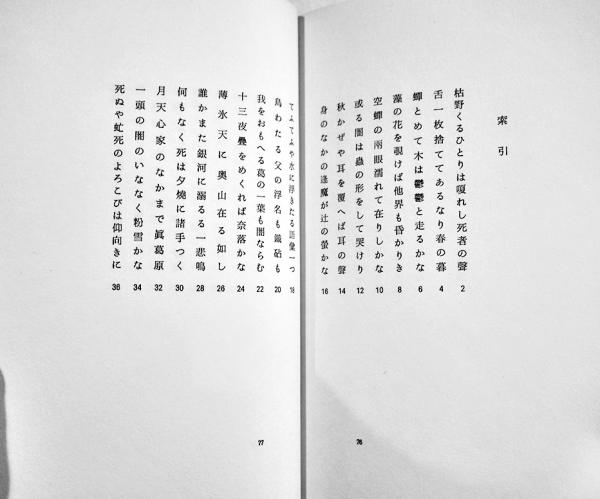 索引
枯野くるひとりは嗄れし死者の聲 2
舌一枚捨ててあるなり春の暮 4
蟬とめて木は鬱鬱と走るかな 6
藻の花を覗けば他界も昏かりき 8
空蟬の兩眼濡れて在りしかな 10
或る闇は蟲の形をして哭けり 12
秋かぜや耳を覆へば耳の聲 14
身のなかの逢魔が辻の螢かな 16
76
てふてふや水に浮きたる語彙一つ 18
鳥わたる父の浮名も鐵砧も 20
我をおもへる葛の一葉も闇ならむ 22
十三夜疊をめくれば奈落かな 24
薄氷天に奥山在る如し 26
誰かまた銀河に溺るる一悲鳴 28
何もなく死は夕燒に諸手つく 30
月天心家のなかまで眞葛原 32
一頭の闇のいななく粉雪かな 34
死ぬや虻死のよろこびは仰向きに 36
77